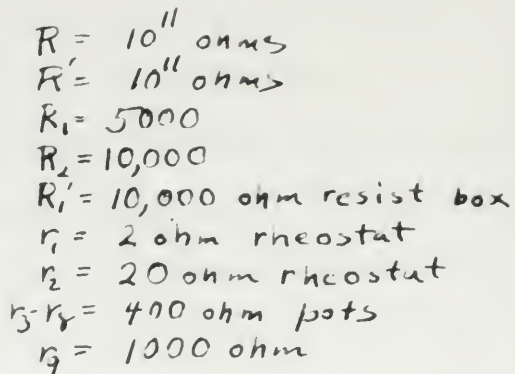 R = 10¹¹ ohms
R' = 10¹¹ ohms
R₁ = 5000
R₂ = 10,000
R₁' = 10,000 ohm resist box
r₁ = 2 ohm rheostat
r₂ = 20 ohm rheostat
r₃-r₈ = 400 ohm pots
r₉ = 1000 ohm